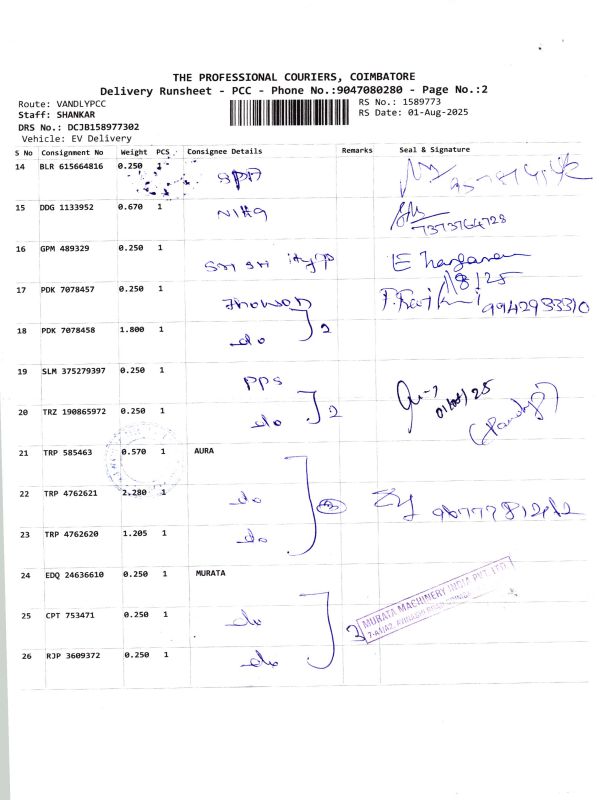 THE PROFESSIONAL COURIERS, COIMBATORE
Delivery Runsheet - PCC - Phone No.:9047080280 - Page No.:2
Route: VANDLYPCC
Staff: SHANKAR
DRS No.: DCJB158977302
Vehicle: EV Delivery
RS No.: 1589773
RS Date: 01-Aug-2025
S No Consignment No Weight PCS Consignee Details Remarks Seal & Signature
14 BLR 615664816 0.250 1
15 DDG 1133952 0.670 1 7373764728
16 GPM 489329 0.250 1 Sri sri
17 PDK 7078457 0.250 1 9942933310
18 PDK 7078458 1.800 1 do 2
19 SLM 375279397 0.250 1 PPS 01/08/25
20 TRZ 190865972 0.250 1 do 2
21 TRP 585463 0.570 1 AURA
22 TRP 4762621 2.280 1 do
23 TRP 4762620 1.205 1 do
24 EDQ 24636610 0.250 1 MURATA
25 CPT 753471 0.250 1 do 3 MURATA MACHINERY INDIA PVT. LTD
26 RJP 3609372 0.250 1 do